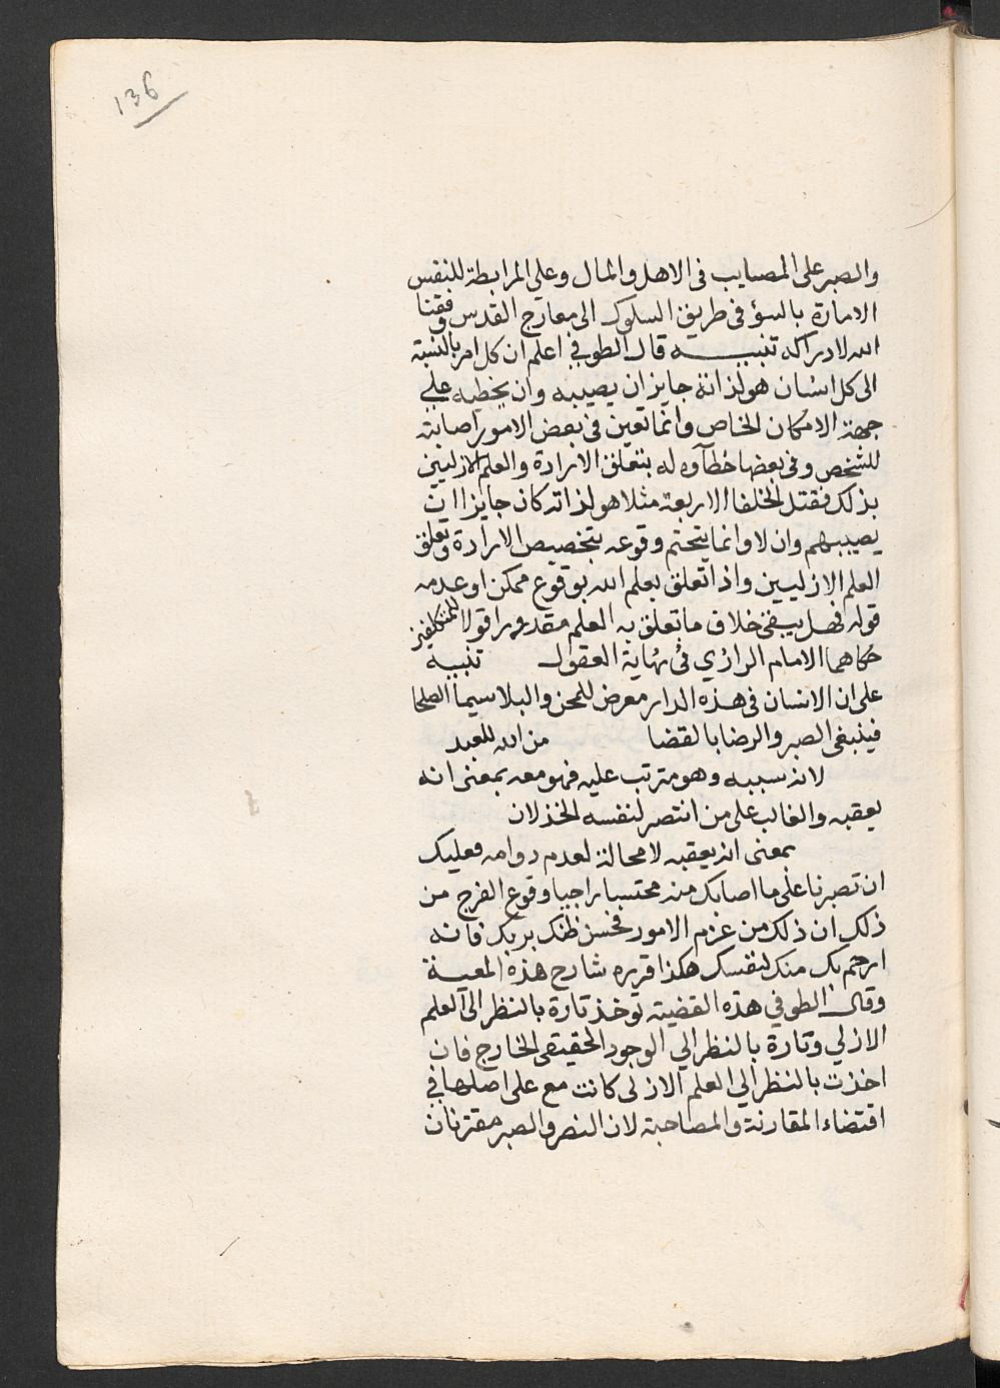 136
والصبر على المصايب فى الاهل والمال وعلى المرابطة للنفس
الامارة بالسؤ فى طريق السلوك الى معارج القدس وفقنا
الله لادراكه تنبيه قال الطوفي اعلم ان كل امر بالنسبة
الى كل انسان هو لذاته جايز ان يصيبه وان يخطيه على
جهة الامكان الخاص وانما تعين فى بعض الامور اصابته
للشخص وفى بعضها خطاوه له بتعلق الارادة والعلم الازليين
بذلك فقتل الخلفا الاربعة مثلا هو لذاته كان جايزا ان
يصيبهم وان لا وانما يتحتم وقوعه بتخصيص الارادة وتعلق
العلم الازليين واذا تعلق بعلم الله بوقوع ممكن او عدمه
قوله فهل يبقى خلاف ما تعلق به العلم مقدورا قولا للمتكلمين
حكاهما الامام الرازي فى نهاية العقول تنبيه
على ان الانسان فى هذه الدار معرض للمحن والبلا سيما الصلحا
فينبغى الصبر والرضا بالقضا من الله للعبد
لانه سببه وهو مترتب عليه فهو معه بمعنى انه
يعقبه والغالب على من انتصر لنفسه الخذلان
بمعنى انه يعقبه لا محالة لعدم دوامه فعليك
ان تصبرنا على ما اصابك منه محتسبا راجيا وقوع الفرج من
ذلك ان ذلك من عزم الامور فحسن ظنك بربك فانه
ارحم بك منك لنفسك هكذا قرره شارح هذه المعية
وقال الطوفي هذه القضية توخذ تارة بالنظر الى العلم
الازلي وتارة بالنظر الي الوجود الحقيقى الخارج فان
اخذت بالنظر الي العلم الازلى كانت مع على اصلها في
اقتضاء المقارنة والمصاحبة لان النصر والصبر مقترنان